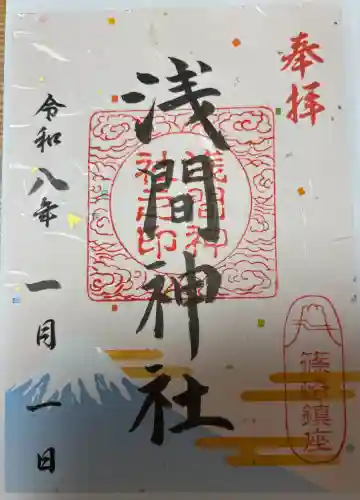 奉拝
浅間神社
浅間神
社之印
篠崎鎮座
令和八年 一月 一日